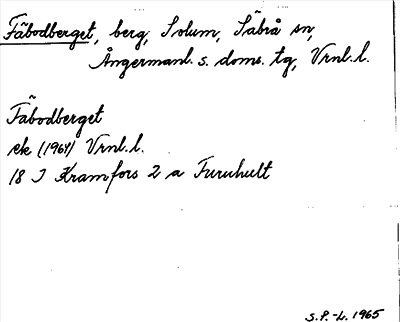 Fäbodberget, berg, Solum, Säbrå sn,
Ångermanl. s. doms. tg, Vrnl. l.
Fäbodberget
ek (1964) Vrnl. l.
18 J Kramfors 2 a Furuhult
S.P.-L. 1965